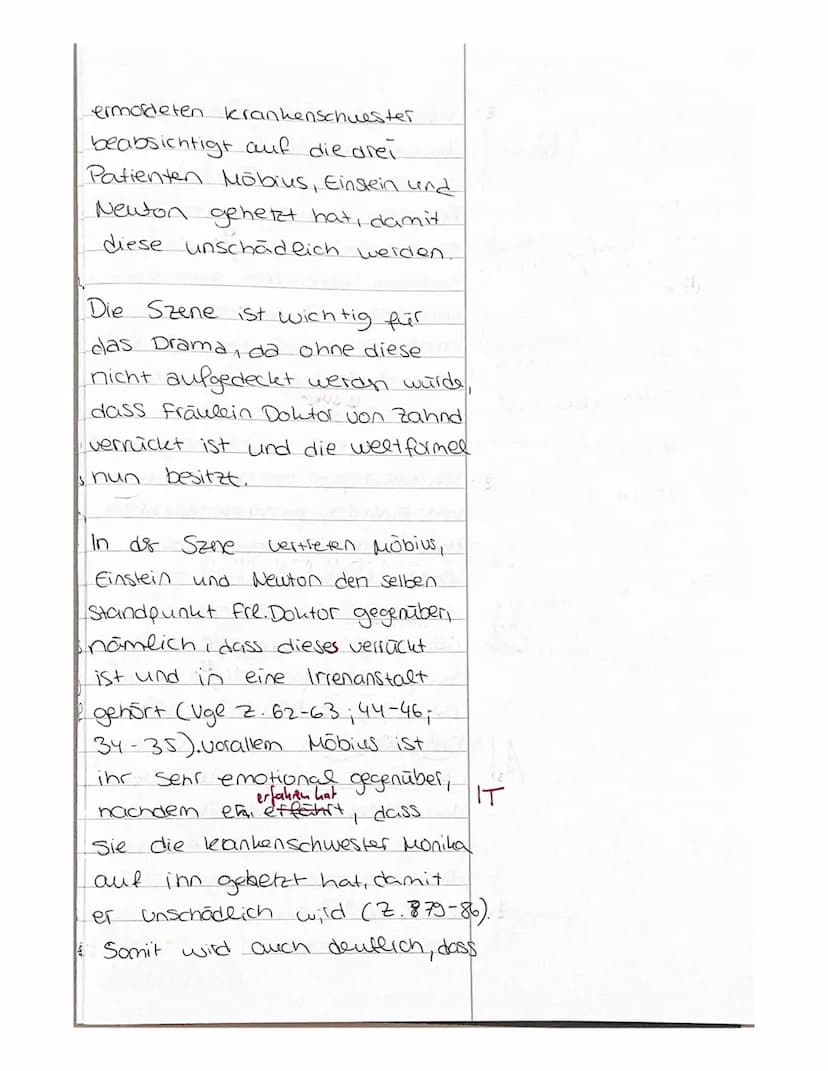 ermordeten Krankenschwester
beabsichtigt auf die drei
Patienten Möbius, Einstein und
Newton gehetzt hat, damit
diese unschädlich werden.
Die Szene ist wichtig für
das Drama, da ohne diese
nicht aufgedeckt werden würde,
dass Fräulein Doktor von Zahnd
verrückt ist und die Weltformel
nun besitzt.
In der Szene vertreten Möbius,
Einstein und Newton den selben
Standpunkt Frl. Doktor gegenüber,
nämlich, dass dieses verrückt
ist und in eine Irrenanstalt
gehört (Vgl Z. 62-63; 44-46;
34-35). Vorallem Möbius ist
ihr sehr emotional gegenüber,
erfahren hat
nachdem er erfährt, dass IT
sie die Krankenschwester Monika
auf ihn gehetzt hat, damit
er unschädlich wird (Z. 79-86).
Somit wird auch deutlich, dass